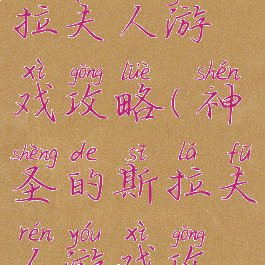 拉夫人游
xì gōng lüè shén
戏攻略(神
shèng de sī lā fū
圣的斯拉夫
rén yóu xì gōng
人游戏攻